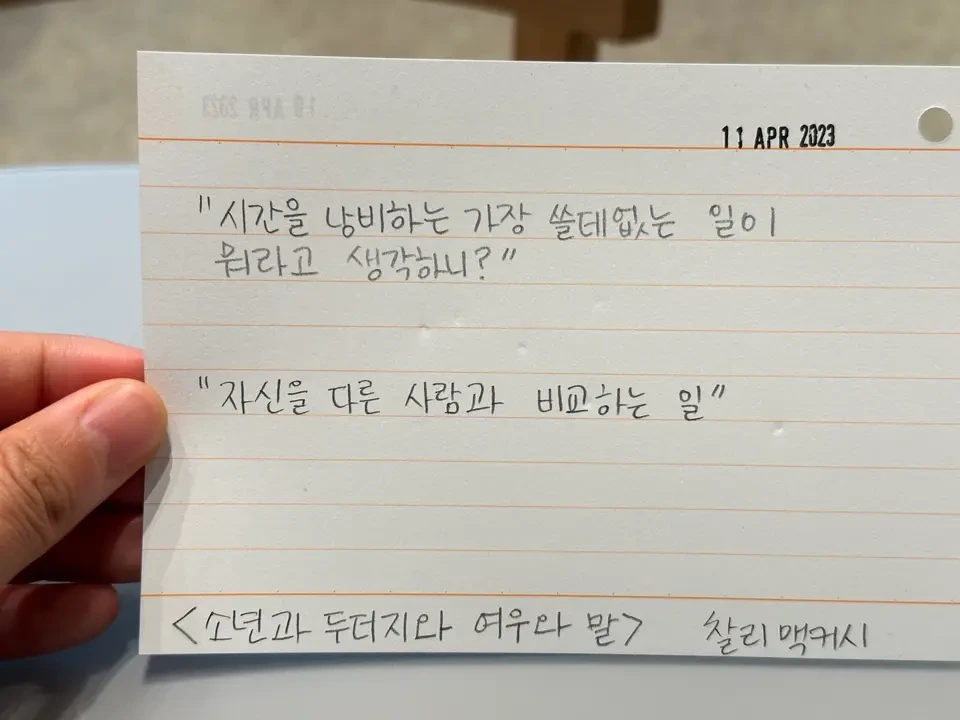 11 APR 2023
"시간을 낭비하는 가장 쓸데없는 일이
뭐라고 생각하니?"
"자신을 다른 사람과 비교하는 일"
<소년과 두더지와 여우와 말> 찰리 맥커시